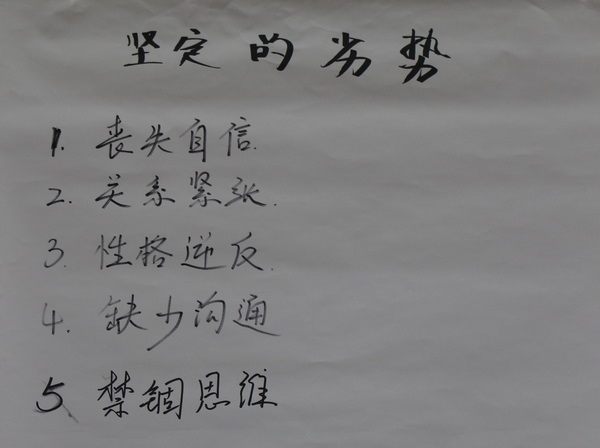 坚定的劣势
1. 丧失自信.
2. 关系紧张.
3. 性格逆反.
4. 缺少沟通
5. 禁锢思维